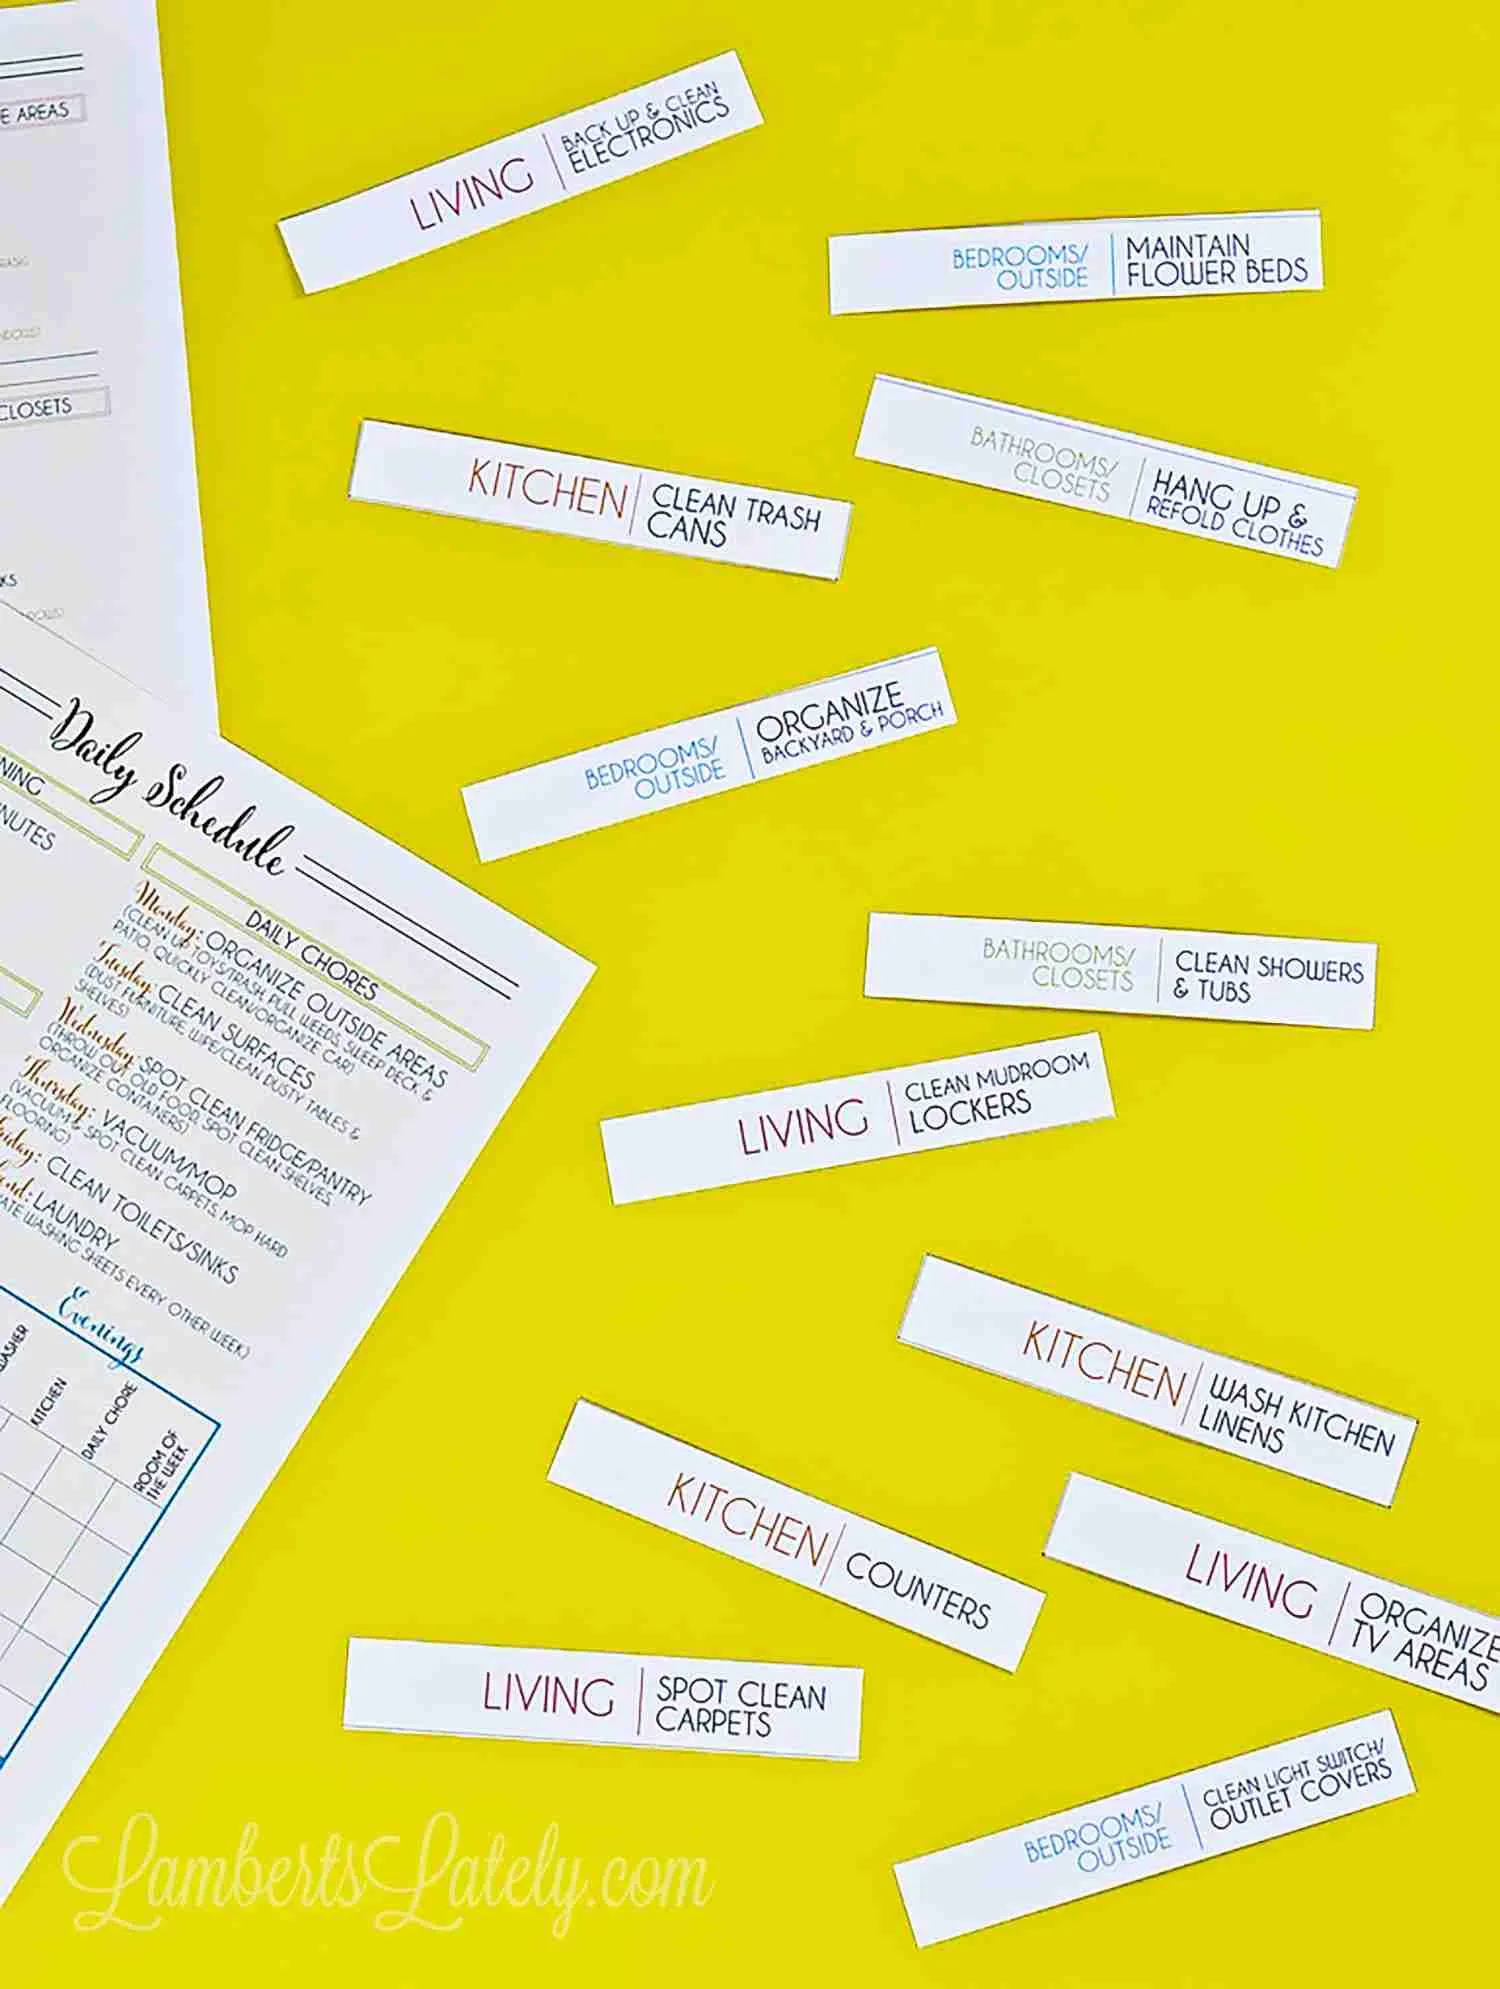 E AREAS
CLOSETS
LIVING
BACK UP & CLEAN
ELECTRONICS
BEDROOMS/
OUTSIDE
MAINTAIN
FLOWER BEDS
KITCHEN
CLEAN TRASH
CANS
BATHROOMS/
CLOSETS
HANG UP &
REFOLD CLOTHES
BEDROOMS/
OUTSIDE
ORGANIZE
BACKYARD & PORCH
Daily Schedule
NING
NUTES
DAILY CHORES
Monday: ORGANIZE OUTSIDE AREAS
(CLEAN UP TOYS/TRASH, PULL WEEDS, SWEEP DECK &
PATIO, QUICKLY CLEAN/ORGANIZE CAR)
Tuesday: CLEAN SURFACES
(DUST FURNITURE, WIPE/CLEAN DUSTY TABLES &
SHELVES)
Wednesday: SPOT CLEAN FRIDGE/PANTRY
(THROW OUT OLD FOOD, SPOT CLEAN SHELVES,
ORGANIZE CONTAINERS)
Thursday: VACUUM/MOP
(VACUUM & SPOT CLEAN CARPETS, MOP HARD
FLOORING)
iday: CLEAN TOILETS/SINKS
end: LAUNDRY
ATE WASHING SHEETS EVERY OTHER WEEK)
Evenings
WASHER
KITCHEN
DAILY CHORE
ROOM OF
THE WEEK
BATHROOMS/
CLOSETS
CLEAN SHOWERS
& TUBS
LIVING
CLEAN MUDROOM
LOCKERS
KITCHEN
WASH KITCHEN
LINENS
KITCHEN
COUNTERS
LIVING
ORGANIZE
TV AREAS
LIVING
SPOT CLEAN
CARPETS
BEDROOMS/
OUTSIDE
CLEAN LIGHT SWITCH/
OUTLET COVERS
LambertsLately.com